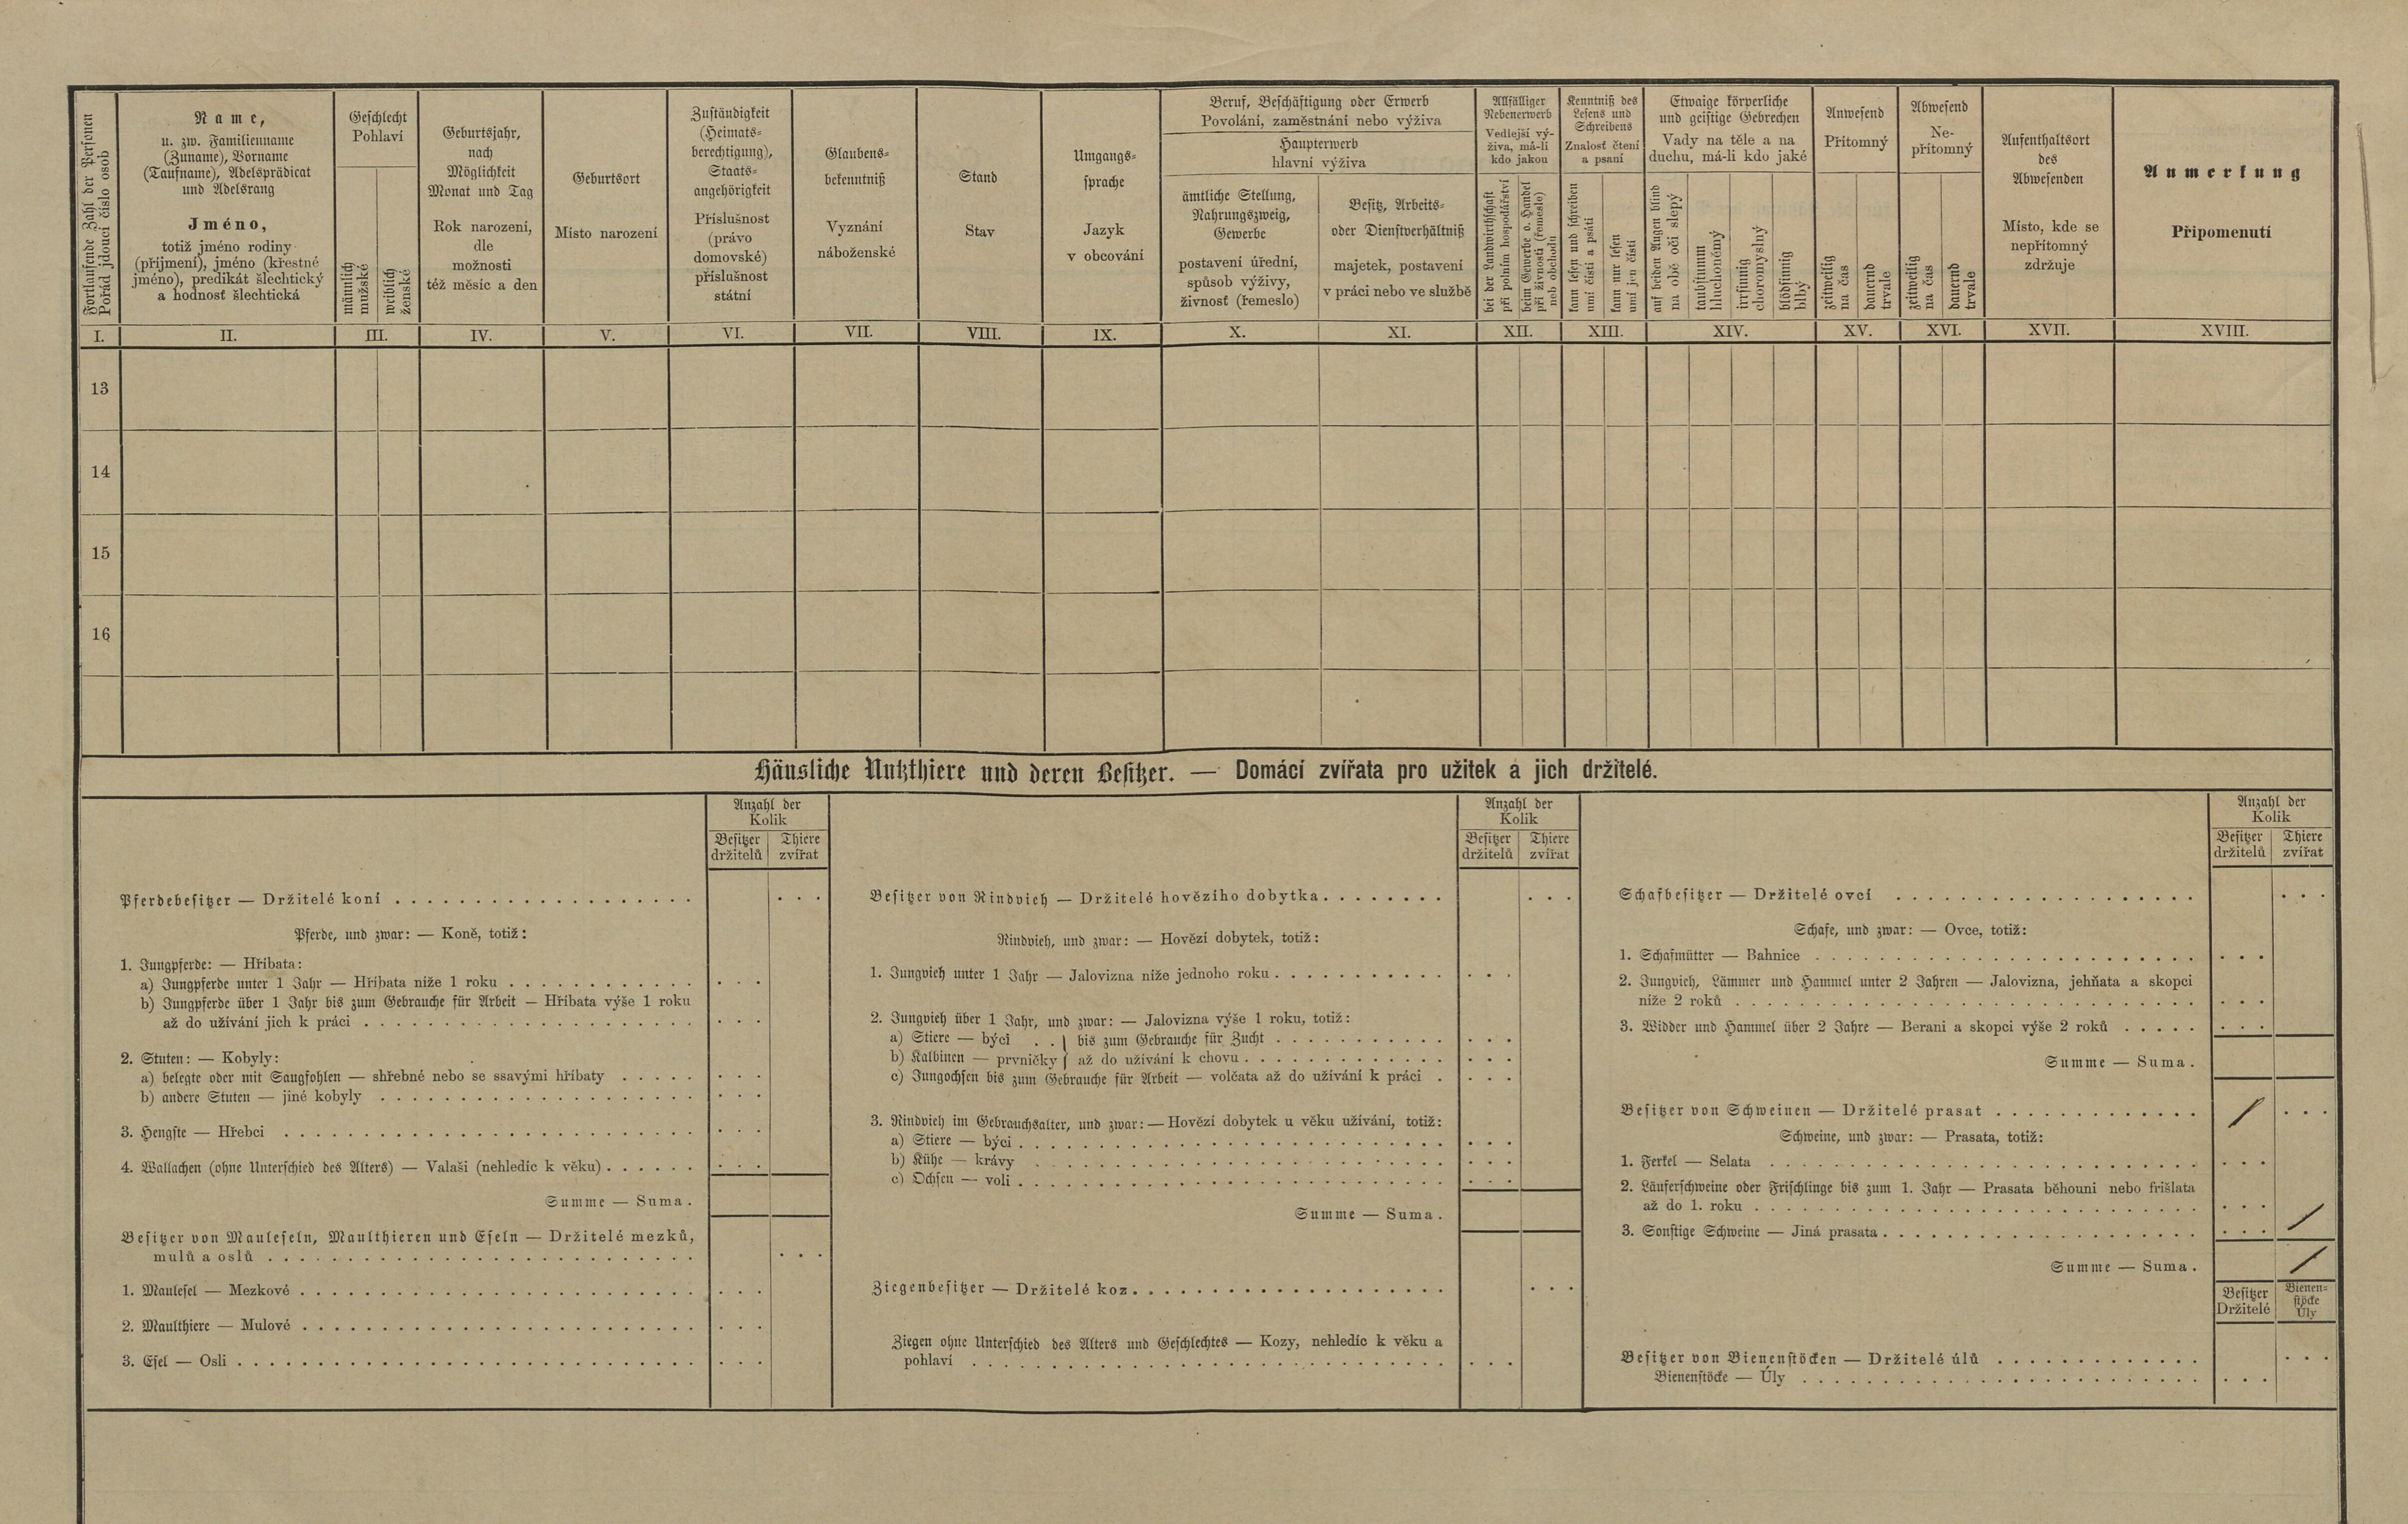 Fortlaufende Zahl der Personen
Pořád jdoucí číslo osob
Name,
u. zw. Familienname
(Zuname), Vorname
(Taufname), Adelsprädicat
und Adelsrang
Jméno,
totiž jméno rodiny
(příjmení), jméno (křestné
jméno), predikát šlechtický
a hodnosť šlechtická
Geschlecht
Pohlaví
männlich
mužské
weiblich
ženské
Geburtsjahr,
nach
Möglichkeit
Monat und Tag
Rok narození,
dle
možnosti
též měsíc a den
Geburtsort
Místo narození
Zuständigkeit
(Heimats-
berechtigung),
Staats-
angehörigkeit
Příslušnost
(právo
domovské)
příslušnost
státní
Glaubens-
bekenntniß
Vyznání
náboženské
Stand
Stav
Umgangs-
sprache
Jazyk
v obcování
Beruf, Beschäftigung oder Erwerb
Povolání, zaměstnání nebo výživa
Haupterwerb
hlavní výživa
ämtliche Stellung,
Nahrungszweig,
Gewerbe
postavení úřední,
spůsob výživy,
živnosť (řemeslo)
Besitz, Arbeits-
oder Dienstverhältniß
majetek, postavení
v práci nebo ve službě
Allfälliger
Nebenerwerb
Vedlejší vý-
živa, má-li
kdo jakou
bei der Landwirthschaft
při polním hospodářství
beim Gewerbe o. Handel
při živnosti (řemeslo)
neb obchodu
Kenntniß des
Lesens und
Schreibens
Znalosť čtení
a psaní
kann lesen und schreiben
umí čísti a psáti
kann nur lesen
umí jen čísti
Etwaige körperliche
und geistige Gebrechen
Vady na těle a na
duchu, má-li kdo jaké
auf beiden Augen blind
na obě oči slepý
taubstumm
hluchoněmý
irrsinnig
choromyslný
blödsinnig
blbý
Anwesend
Přítomný
zeitweilig
na čas
dauernd
trvale
Abwesend
Ne-
přítomný
zeitweilig
na čas
dauernd
trvale
Aufenthaltsort
des
Abwesenden
Místo, kde se
nepřítomný
zdržuje
Anmerkung
Připomenutí
I. II. III. IV. V. VI. VII. VIII. IX. X. XI. XII. XIII. XIV. XV. XVI. XVII. XVIII.
13
14
15
16
Häusliche Nutzthiere und deren Besitzer. — Domácí zvířata pro užitek a jich držitelé.
Anzahl der
Kolik
Besitzer Thiere
držitelů zvířat
Pferdebesitzer — Držitelé koní . . . . . . . . . . . . . . . . . . .
Pferde, und zwar: — Koně, totiž:
1. Jungpferde: — Hříbata:
a) Jungpferde unter 1 Jahr — Hříbata níže 1 roku . . . . . . . . . . . .
b) Jungpferde über 1 Jahr bis zum Gebrauche für Arbeit — Hříbata výše 1 roku
až do užívání jich k práci . . . . . . . . . . . . . . . . . . . . .
2. Stuten: — Kobyly:
a) belegte oder mit Saugfohlen — shřebné nebo se ssavými hříbaty . . . . .
b) andere Stuten — jiné kobyly . . . . . . . . . . . . . . . . . . . .
3. Hengste — Hřebci . . . . . . . . . . . . . . . . . . . . . . . . . .
4. Wallachen (ohne Unterschied des Alters) — Valaši (nehledíc k věku) . . . . . .
Summe — Suma.
Besitzer von Mauleseln, Maulthieren und Eseln — Držitelé mezků,
mulů a oslů . . . . . . . . . . . . . . . . . . . . . . . . . . .
1. Maulesel — Mezkové . . . . . . . . . . . . . . . . . . . . . . . . .
2. Maulthiere — Mulové . . . . . . . . . . . . . . . . . . . . . . . . .
3. Esel — Osli . . . . . . . . . . . . . . . . . . . . . . . . . . . . .
Anzahl der
Kolik
Besitzer Thiere
držitelů zvířat
Besitzer von Rindvieh — Držitelé hovězího dobytka . . . . . . . .
Rindvieh, und zwar: — Hovězí dobytek, totiž:
1. Jungvieh unter 1 Jahr — Jalovizna níže jednoho roku . . . . . . . . . . .
2. Jungvieh über 1 Jahr, und zwar: — Jalovizna výše 1 roku, totiž:
a) Stiere — býci . . } bis zum Gebrauche für Zucht . . . . . . . . . . .
b) Kalbinen — prvničky } až do užívání k chovu . . . . . . . . . . . . .
c) Jungochsen bis zum Gebrauche für Arbeit — volčata až do užívání k práci .
3. Rindvieh im Gebrauchsalter, und zwar: — Hovězí dobytek u věku užívání, totiž:
a) Stiere — býci . . . . . . . . . . . . . . . . . . . . . . . . . . .
b) Kühe — krávy . . . . . . . . . . . . . . . . . . . . . . . . . .
c) Ochsen — voli . . . . . . . . . . . . . . . . . . . . . . . . . . .
Summe — Suma.
Ziegenbesitzer — Držitelé koz . . . . . . . . . . . . . . . . . . . .
Ziegen ohne Unterschied des Alters und Geschlechtes — Kozy, nehledíc k věku a
pohlaví . . . . . . . . . . . . . . . . . . . . . . . . . . . . . .
Anzahl der
Kolik
Besitzer Thiere
držitelů zvířat
Schafbesitzer — Držitelé ovcí . . . . . . . . . . . . . . . . . . .
Schafe, und zwar: — Ovce, totiž:
1. Schafmütter — Bahnice . . . . . . . . . . . . . . . . . . . . . . . .
2. Jungvieh, Lämmer und Hammel unter 2 Jahren — Jalovizna, jehňata a skopci
níže 2 roků . . . . . . . . . . . . . . . . . . . . . . . . . . . . .
3. Widder und Hammel über 2 Jahre — Berani a skopci výše 2 roků . . . . .
Summe — Suma.
Besitzer von Schweinen — Držitelé prasat . . . . . . . . . . . . . /
Schweine, und zwar: — Prasata, totiž:
1. Ferkel — Selata . . . . . . . . . . . . . . . . . . . . . . . . . . .
2. Läuferschweine oder Frischlinge bis zum 1. Jahr — Prasata běhouni nebo frišlata
až do 1. roku . . . . . . . . . . . . . . . . . . . . . . . . . . . .
3. Sonstige Schweine — Jiná prasata . . . . . . . . . . . . . . . . . . . . /
Summe — Suma. /
Besitzer Bienen-
stöcke
Držitelé Úly
Besitzer von Bienenstöcken — Držitelé úlů . . . . . . . . . . . . .
Bienenstöcke — Úly . . . . . . . . . . . . . . . . . . . . . . . . .